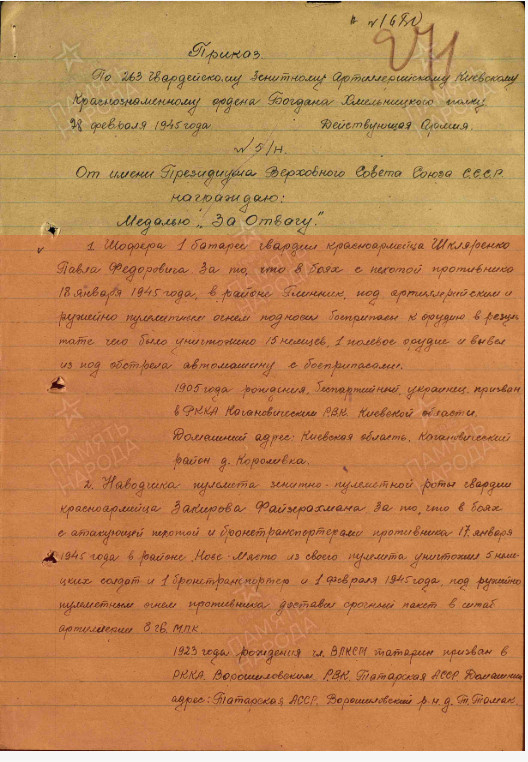 №168/Н
271
Приказ
По 263 гвардейскому зенитному артиллерийскому Киевскому
Краснознаменному ордена Богдана Хмельницкого полку
28 февраля 1945 года Действующая Армия.
№ 5/Н.
От имени Президиума Верховного Совета Союза С.С.С.Р.
награждаю:
Медалью „За Отвагу".
1. Шофера 1 батареи гвардии красноармейца Шкляренко
Павла Федоровича. За то, что в боях с пехотой противника
18 января 1945 года, в районе под артиллерийским и
ружейно пулеметным огнем подносил боеприпасы к орудию в резуль
тате чего было уничтожено 15 немцев, 1 полевое орудие и вывел
из под обстрела автомашину с боеприпасами.
1905 года рождения, беспартийный, украинец, призван
в РККА Кагановичским РВК Киевской области.
Домашний адрес: Киевская область, Кагановичский
район д. Королевка.
2. Наводчика пулемета зенитно-пулеметной роты гвардии
красноармейца Закирова Файзрахмана За то, что в боях
с атакующей пехотой и бронетранспортерами противника 17 января
1945 года в районе Нове-Място из своего пулемета уничтожил 5 неме
цких солдат и 1 бронетранспортер и 1 февраля 1945 года, под ружейно
пулеметным огнем противника доставил срочный пакет в штаб
артиллерии 8 гв. МПК
1923 года рождения чл. ВЛКСМ татарин призван в
РККА. Ворошиловским РВК. Татарская АССР Домашний
адрес: Татарская АССР, Ворошиловский р-н д. Т. Талмак.
ПАМЯТЬ
НАРОДА